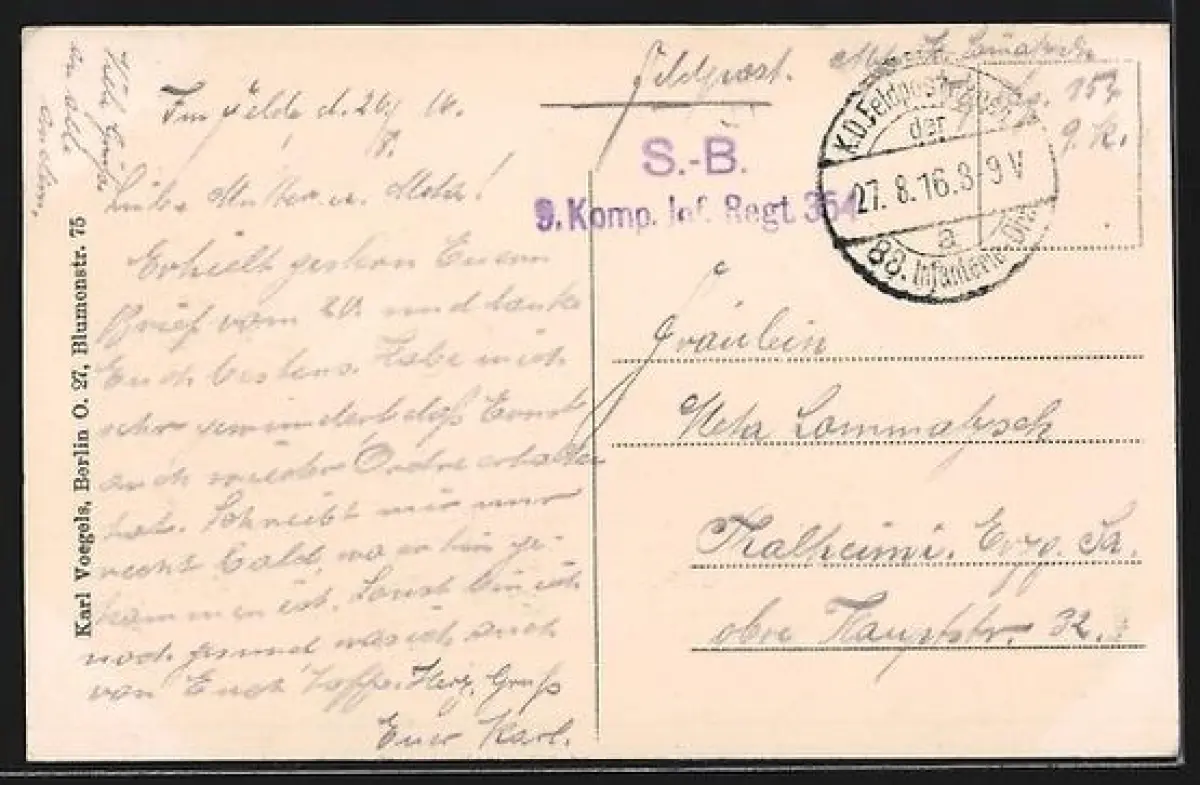 Feldpost.
K. Lommatzsch
9. K.
S.-B.
9. Komp. Inf. Regt. 354
K.D.Feldpost
der
27.8.16.8-9V
a
88. Infanterie-Div.
Viele Grüße
an alle
Im Felde d. 26. 16.
8.
Liebe Mutter u. Meta!
Erhielt gestern Euern
Brief vom 20. und danke
Euch bestens. Habe mich
sehr gewundert daß Ernst
auch wieder Ordre erhalten
hat. Schreibt mir nur
recht bald, wo er hin ge-
kommen ist. Sonst bin ich
noch gesund was ich auch
von Euch hoffe. Herz. Gruß
Euer Karl.
Karl Voegels, Berlin O. 27, Blumenstr. 75
Fräulein
Meta Lommatzsch
Thalheim i. Erzg. Sa.
obre Hauptstr. 32.